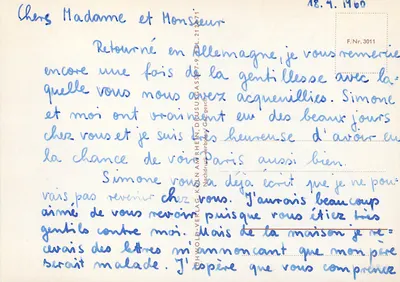 18.9.1960
Chers Madame et Monsieur
F/Nr. 3011
Retourné en Allemagne, je vous remercie
encore une fois de la gentillesse avec la-
quelle vous nous avez acqueuillies. Simone
et moi ont vraiment eu des beaux jours
chez vous et je suis très heureuse d'avoir eu
la chance de voir Paris aussi bien.
Simone vous a déjà écrit que je ne pou-
vais pas revenir chez vous. J'aurais beaucoup
aimé de vous revoir puisque vous étiez très
gentils contre moi. Mais de la maison je re-
cevais des lettres m'annonçant que mon père
serait malade. J'espère que vous comprenez